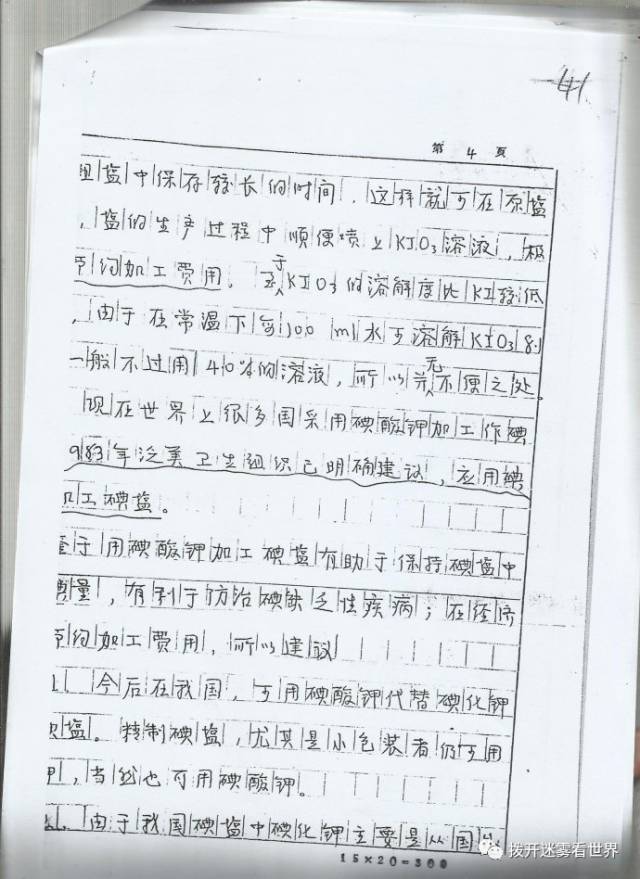 41
第 4 頁
盐中保存较长的时间，这样就可在原盐
，盐的生产过程中顺便喷上KIO₃溶液，极
节约加工费用。至于KIO₃的溶解度比KI较低
，由于在常温下每100 ml水可溶解KIO₃ 8.1
一般不过用4%的溶液，所以并无不便之处。
现在世界上很多国采用碘酸钾加工作碘
983年泛美卫生组织已明确建议，应用碘
加工碘盐。
鉴于用碘酸钾加工碘盐有助于保持碘盐中
量，有利于防治碘缺乏性疾病；在经济
节约加工费用，所以建议
1. 今后在我国，可用碘酸钾代替碘化钾
盐。精制碘盐，尤其是小包装者仍可用
钾，当然也可用碘酸钾。
由于我国碘盐中碘化钾主要是从国
15×20=300
拨开迷雾看世界